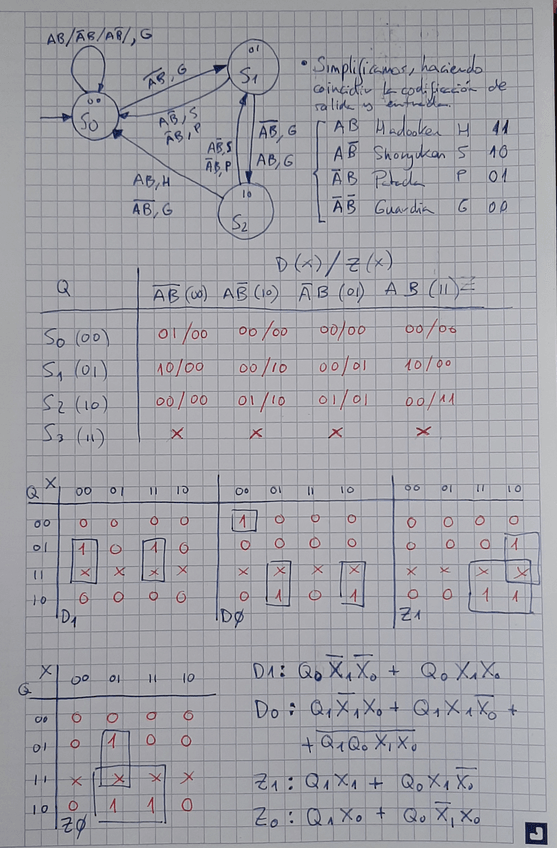 AB/A̅B/AB̅/, G
01
A̅B̅, G
S1
00
S0
AB̅, S
A̅B, P
AB̅, S
A̅B, P
A̅B̅, G
AB, G
AB, H
A̅B̅, G
10
S2
• Simplificamos, haciendo
coincidir la codificación de
salida y entrada.
AB Hadooken H 11
AB̅ Shoryuken S 10
A̅B Patada P 01
A̅B̅ Guardia G 00
D(x)/Z(x)
Q A̅B̅ (00) AB̅ (10) A̅B (01) AB (11)
S0 (00) 01/00 00/00 00/00 00/00
S1 (01) 10/00 00/10 00/01 10/00
S2 (10) 00/00 01/10 01/01 00/11
S3 (11) x x x x
Q X 00 01 11 10 00 01 11 10 00 01 11 10
00 0 0 0 0 1 0 0 0 0 0 0 0
01 1 0 1 0 0 0 0 0 0 0 0 1
11 x x x x x x x x x x x x
10 0 0 0 0 0 1 0 1 0 0 1 1
D1 D0 Z1
Q X 00 01 11 10
00 0 0 0 0
01 0 1 0 0
11 x x x x
10 0 1 1 0
Z0
D1: Q0 X̅1 X̅0 + Q0 X1 X0
D0: Q1 X̅1 X0 + Q1 X1 X̅0 +
+ Q̅1 Q̅0 X̅1 X̅0
Z1: Q1 X1 + Q0 X1 X̅0
Z0: Q1 X0 + Q0 X̅1 X0